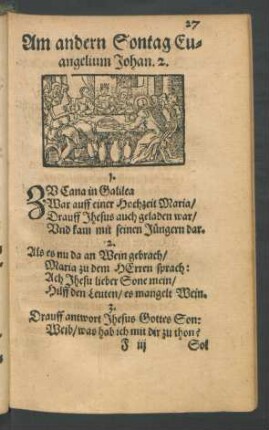 27
Am andern Sontag Eu-
angelium Johan. 2.
1.
ZV Cana in Galilea
War auff einer Hochzeit Maria/
Drauff Jhesus auch geladen war/
Vnd kam mit seinen Jüngern dar.
2.
Als es nu da an Wein gebrach/
Maria zu dem HErren sprach:
Ach Jhesu lieber Sone mein/
Hilff den Leuten/ es mangelt Wein.
3.
Drauff antwort Jhesus Gottes Son:
Weib/ was hab ich mit dir zu thon?
F iij Sol